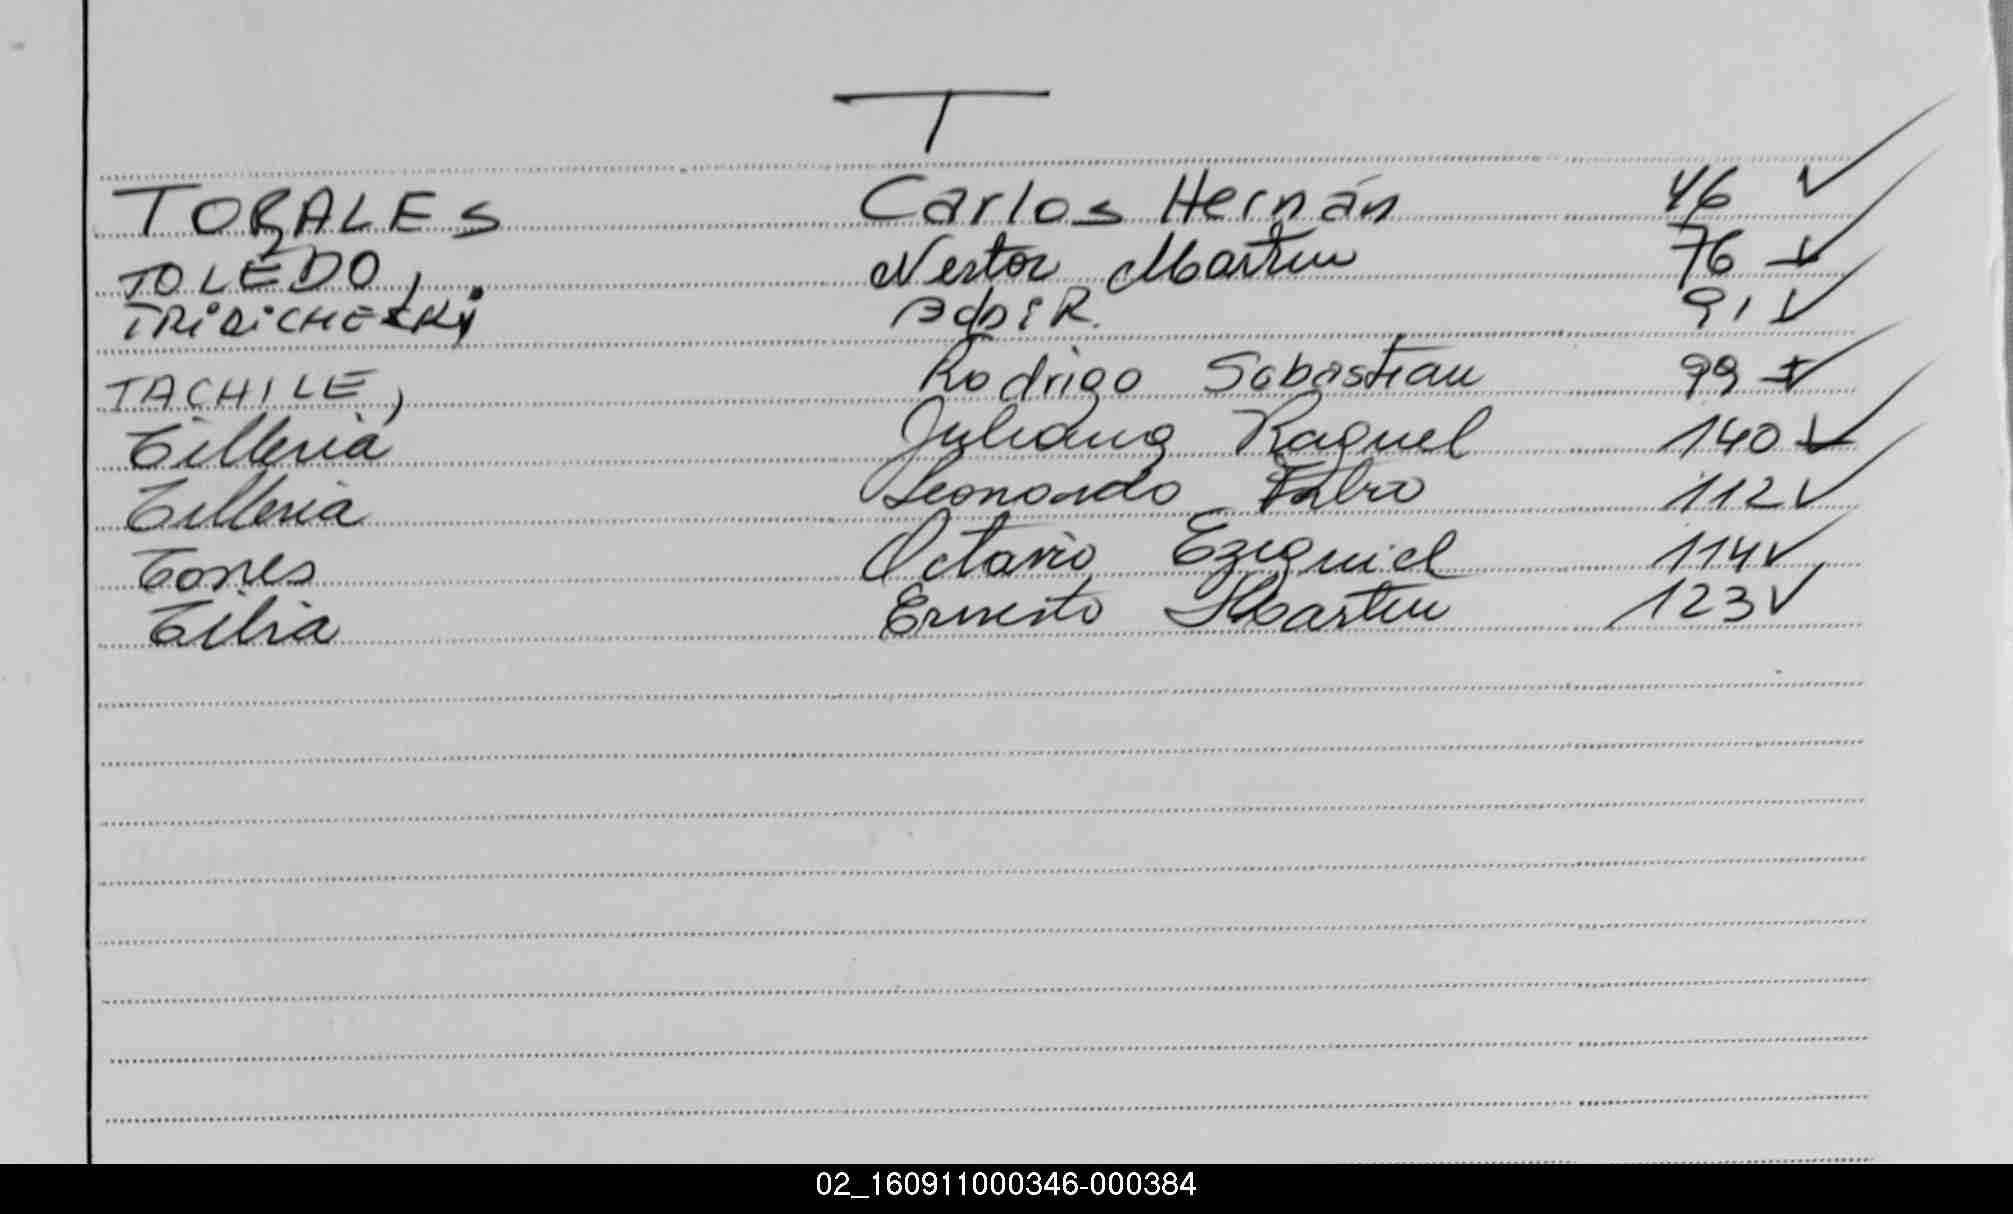 T
TORALES Carlos Hernán 46 ✓
TOLEDO, Nestor Martin 76 ✓
91 ✓
TACHILE, Rodrigo Sebastian 99 ✓
Tilleria Juliana Raquel 140 ✓
Tilleria Leonardo Fabio 112 ✓
Torres Octavio Ezequiel 114 ✓
Tibia Ernesto Martin 123 ✓
02_160911000346-000384